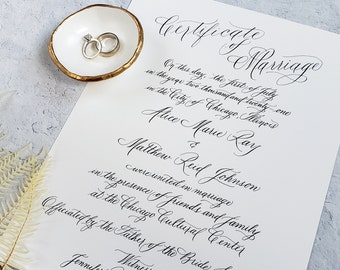 Certificate
of
Marriage
On this day, the first of July
in the year two thousand and twenty-one
in the City of Chicago Illinois
Alice Marie Ray
&
Matthew Reid Johnson
were united in marriage
in the presence of friends and family
at the Chicago Cultural Center
Officiated by the Father of the Brides
Witness
Jennifer